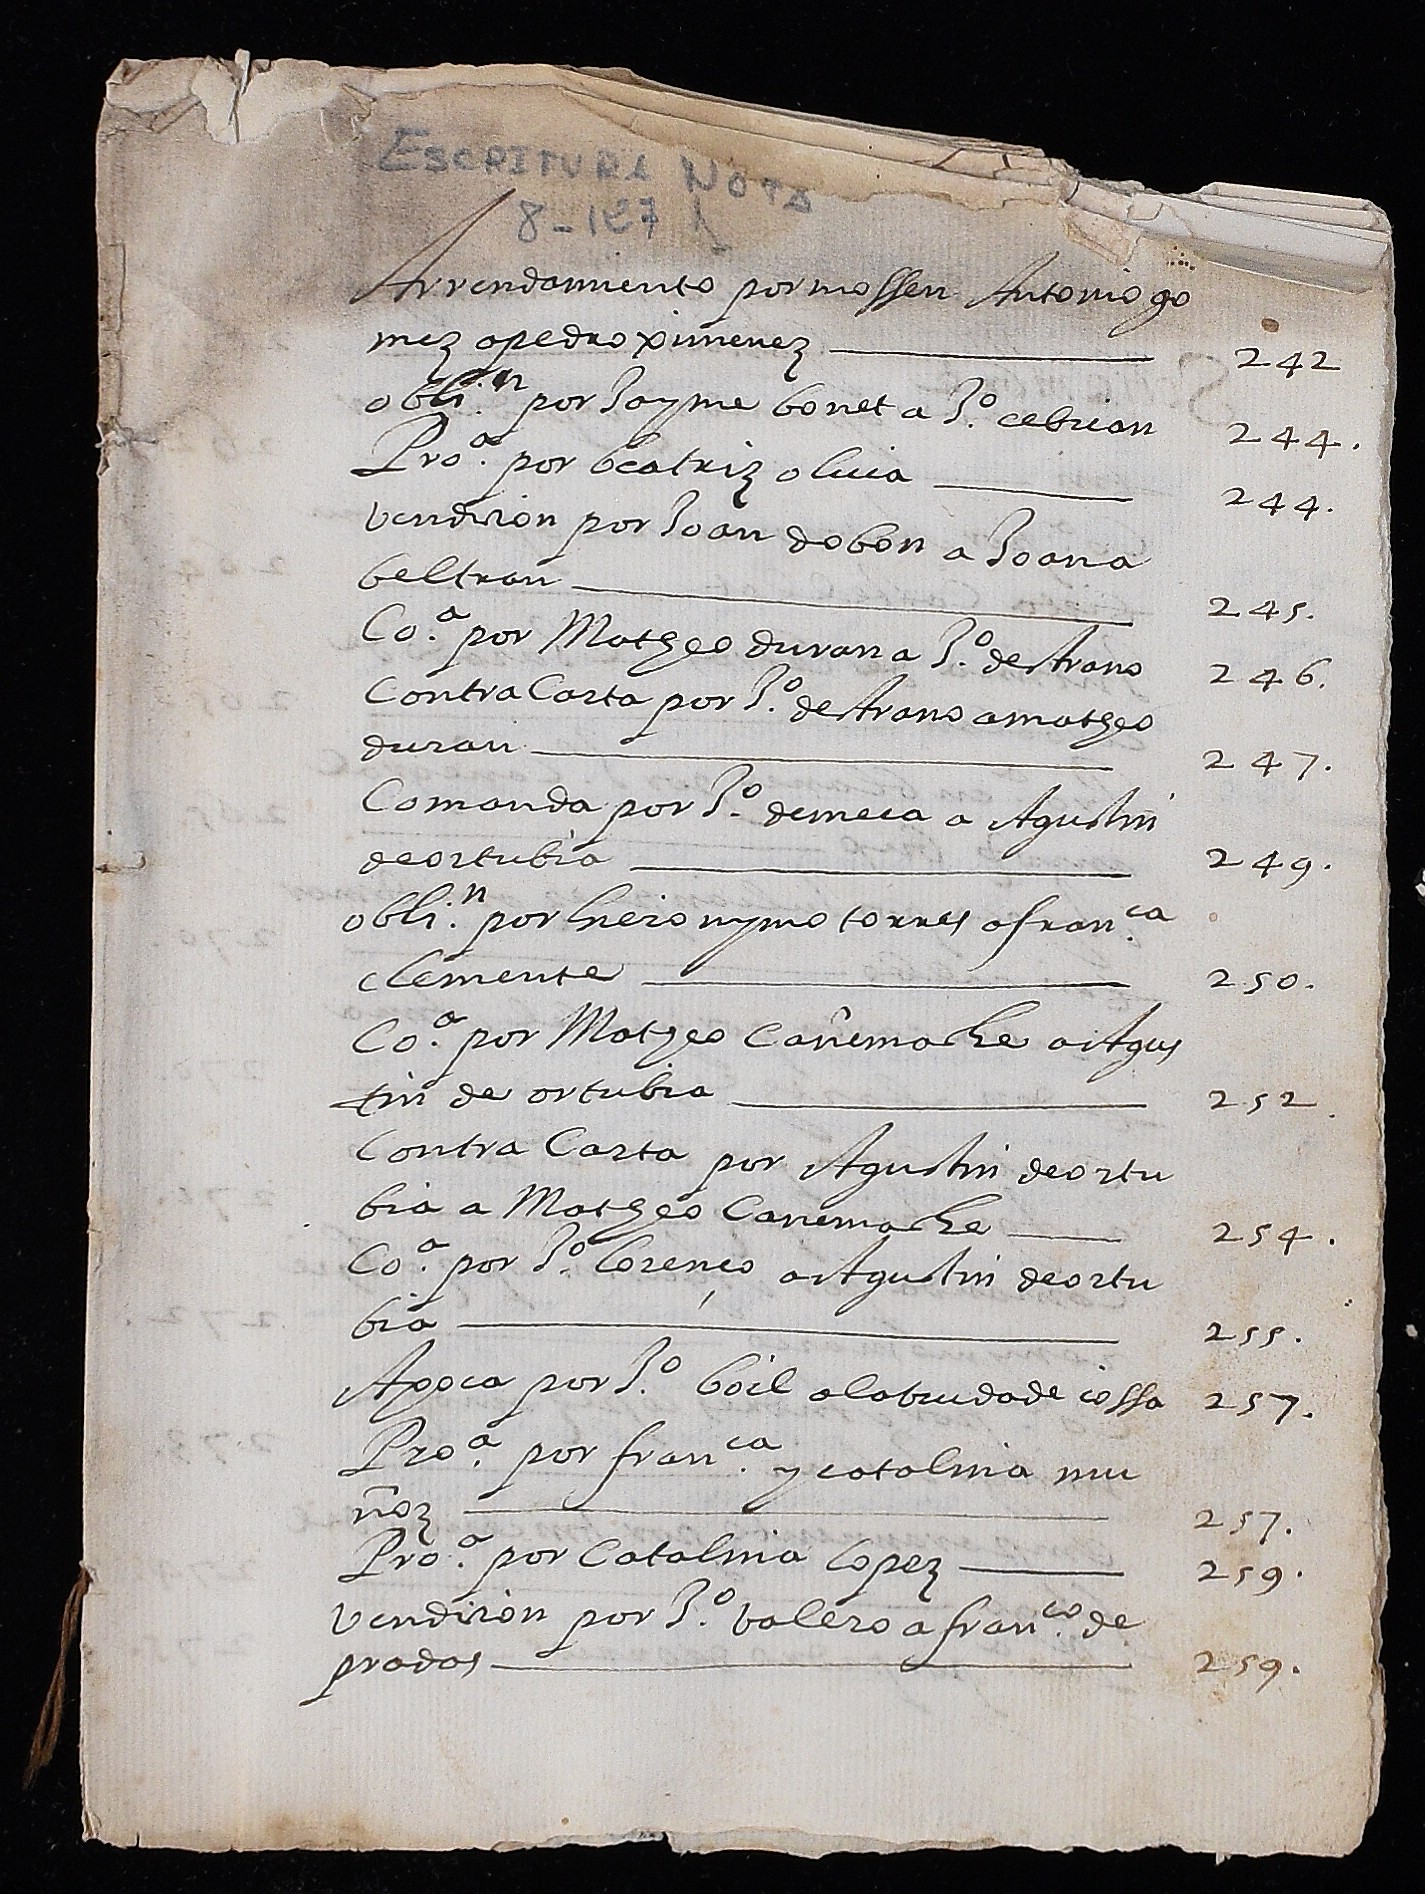 ESCRITURA NOTA
8-127
Arrendamiento por mossen Antonio go
mez a pedro ximenez 242
obli.ⁿ por Jayme bonet a Jº. cebrian 244.
Pro.ª por beatriz oliua 244.
Vendicion por Joan dobon a Joana
beltran 245.
Co.ª por Matheo duran a Jº. de Arano 246.
Contra Carta por Jº. de Arano a matheo
duran 247.
Comanda por Jº. demeca a Agustin
de ortubia 249.
obli.ⁿ por hieronymo torres a fran.ca
clemente 250.
Co.ª por Matheo Cañemache a Agus
tin de ortubia 252.
Contra Carta por Agustin de ortu
bia a Matheo Canemache 254.
Co.ª por Jº. lorenço a Agustin de ortu
bia 255.
Apoca por Jº. boil a la viuda de cossa 257.
Pro.ª por fran.ca y catalina mu
ñoz 257.
Pro.ª por Catalina lopez 259.
Vendicion por Jº. valero a fran.co de
prados 259.